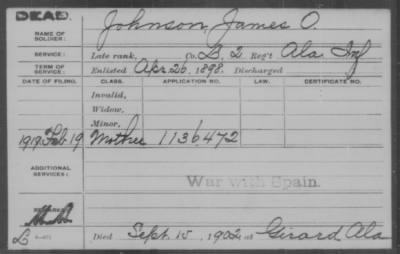 DEAD.
NAME OF SOLDIER: Johnson, James O.
SERVICE: Late rank, Co. L, 2 Reg't Ala Inf
TERM OF SERVICE: Enlisted Apr. 26, 1898. Discharged
DATE OF FILING. CLASS. APPLICATION NO. LAW. CERTIFICATE NO.
Invalid,
Widow,
Minor,
1919 Feb 19 Mother 1136472
ADDITIONAL SERVICES:
War with Spain.
Died Sept. 15, 1902 at Girard Ala